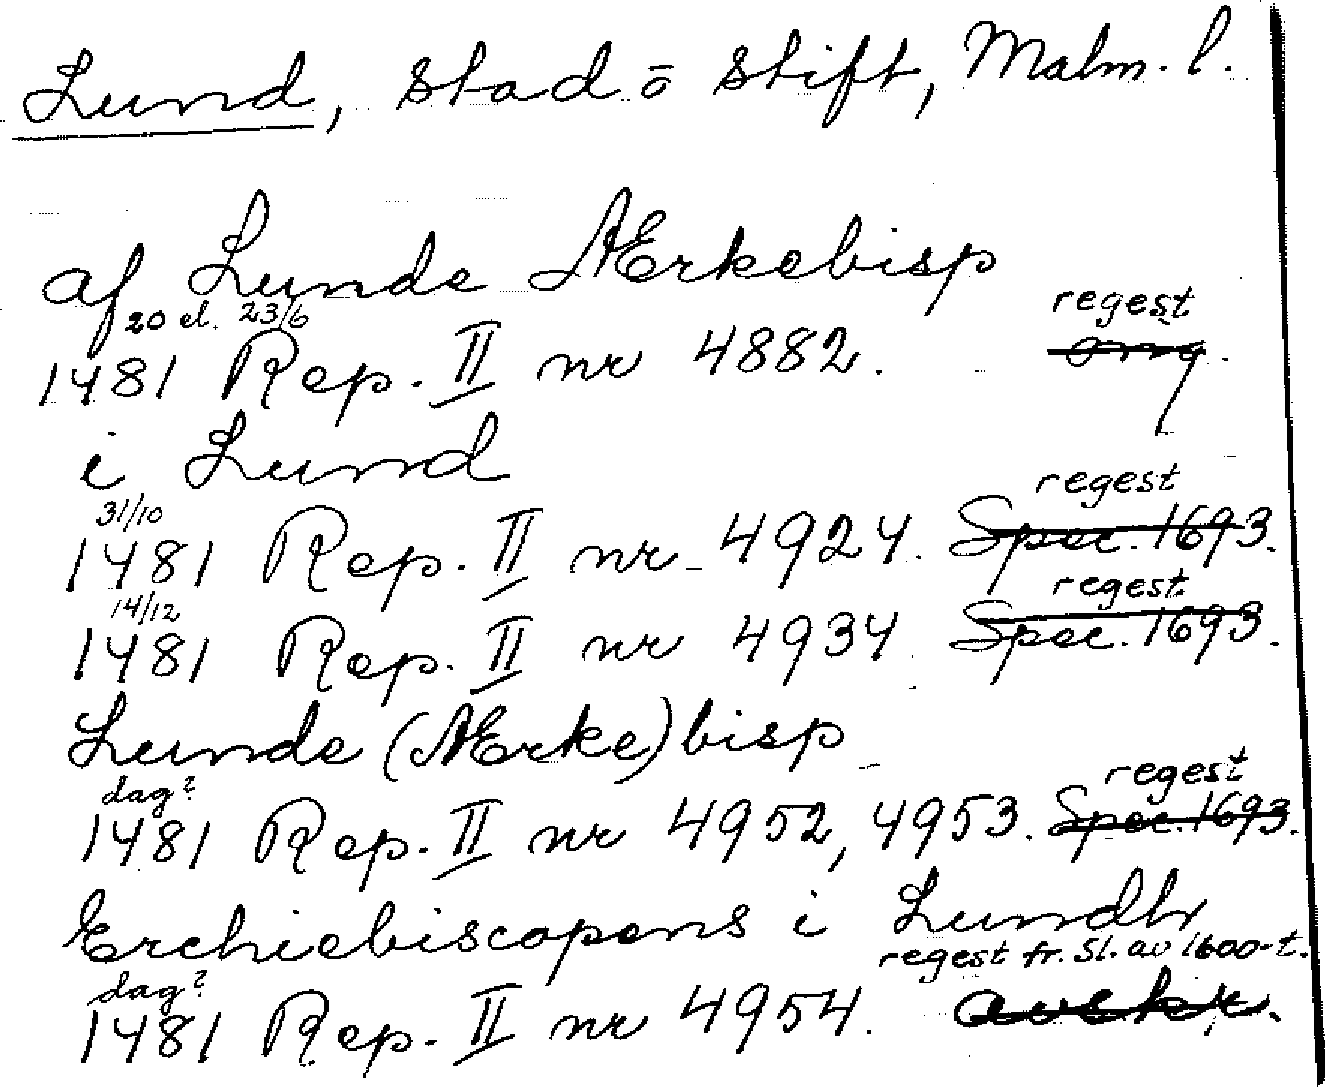 Lund, stad ō stift, Malm. l.
af Lunde Ærkebisp
20 el. 23/6
regest
1481 Rep. II nr 4882. omg.
i Lund
31/10
regest
1481 Rep. II nr 4924. Spec. 1693.
14/12
regest
1481 Rep. II nr 4934 Spec. 1693.
Lunde (Ærke)bisp
dag?
regest
1481 Rep. II nr 4952, 4953. Spec. 1693.
Erchiebiscopens i Lundh
regest fr. sl. av 1600-t.
dag?
1481 Rep. II nr 4954.